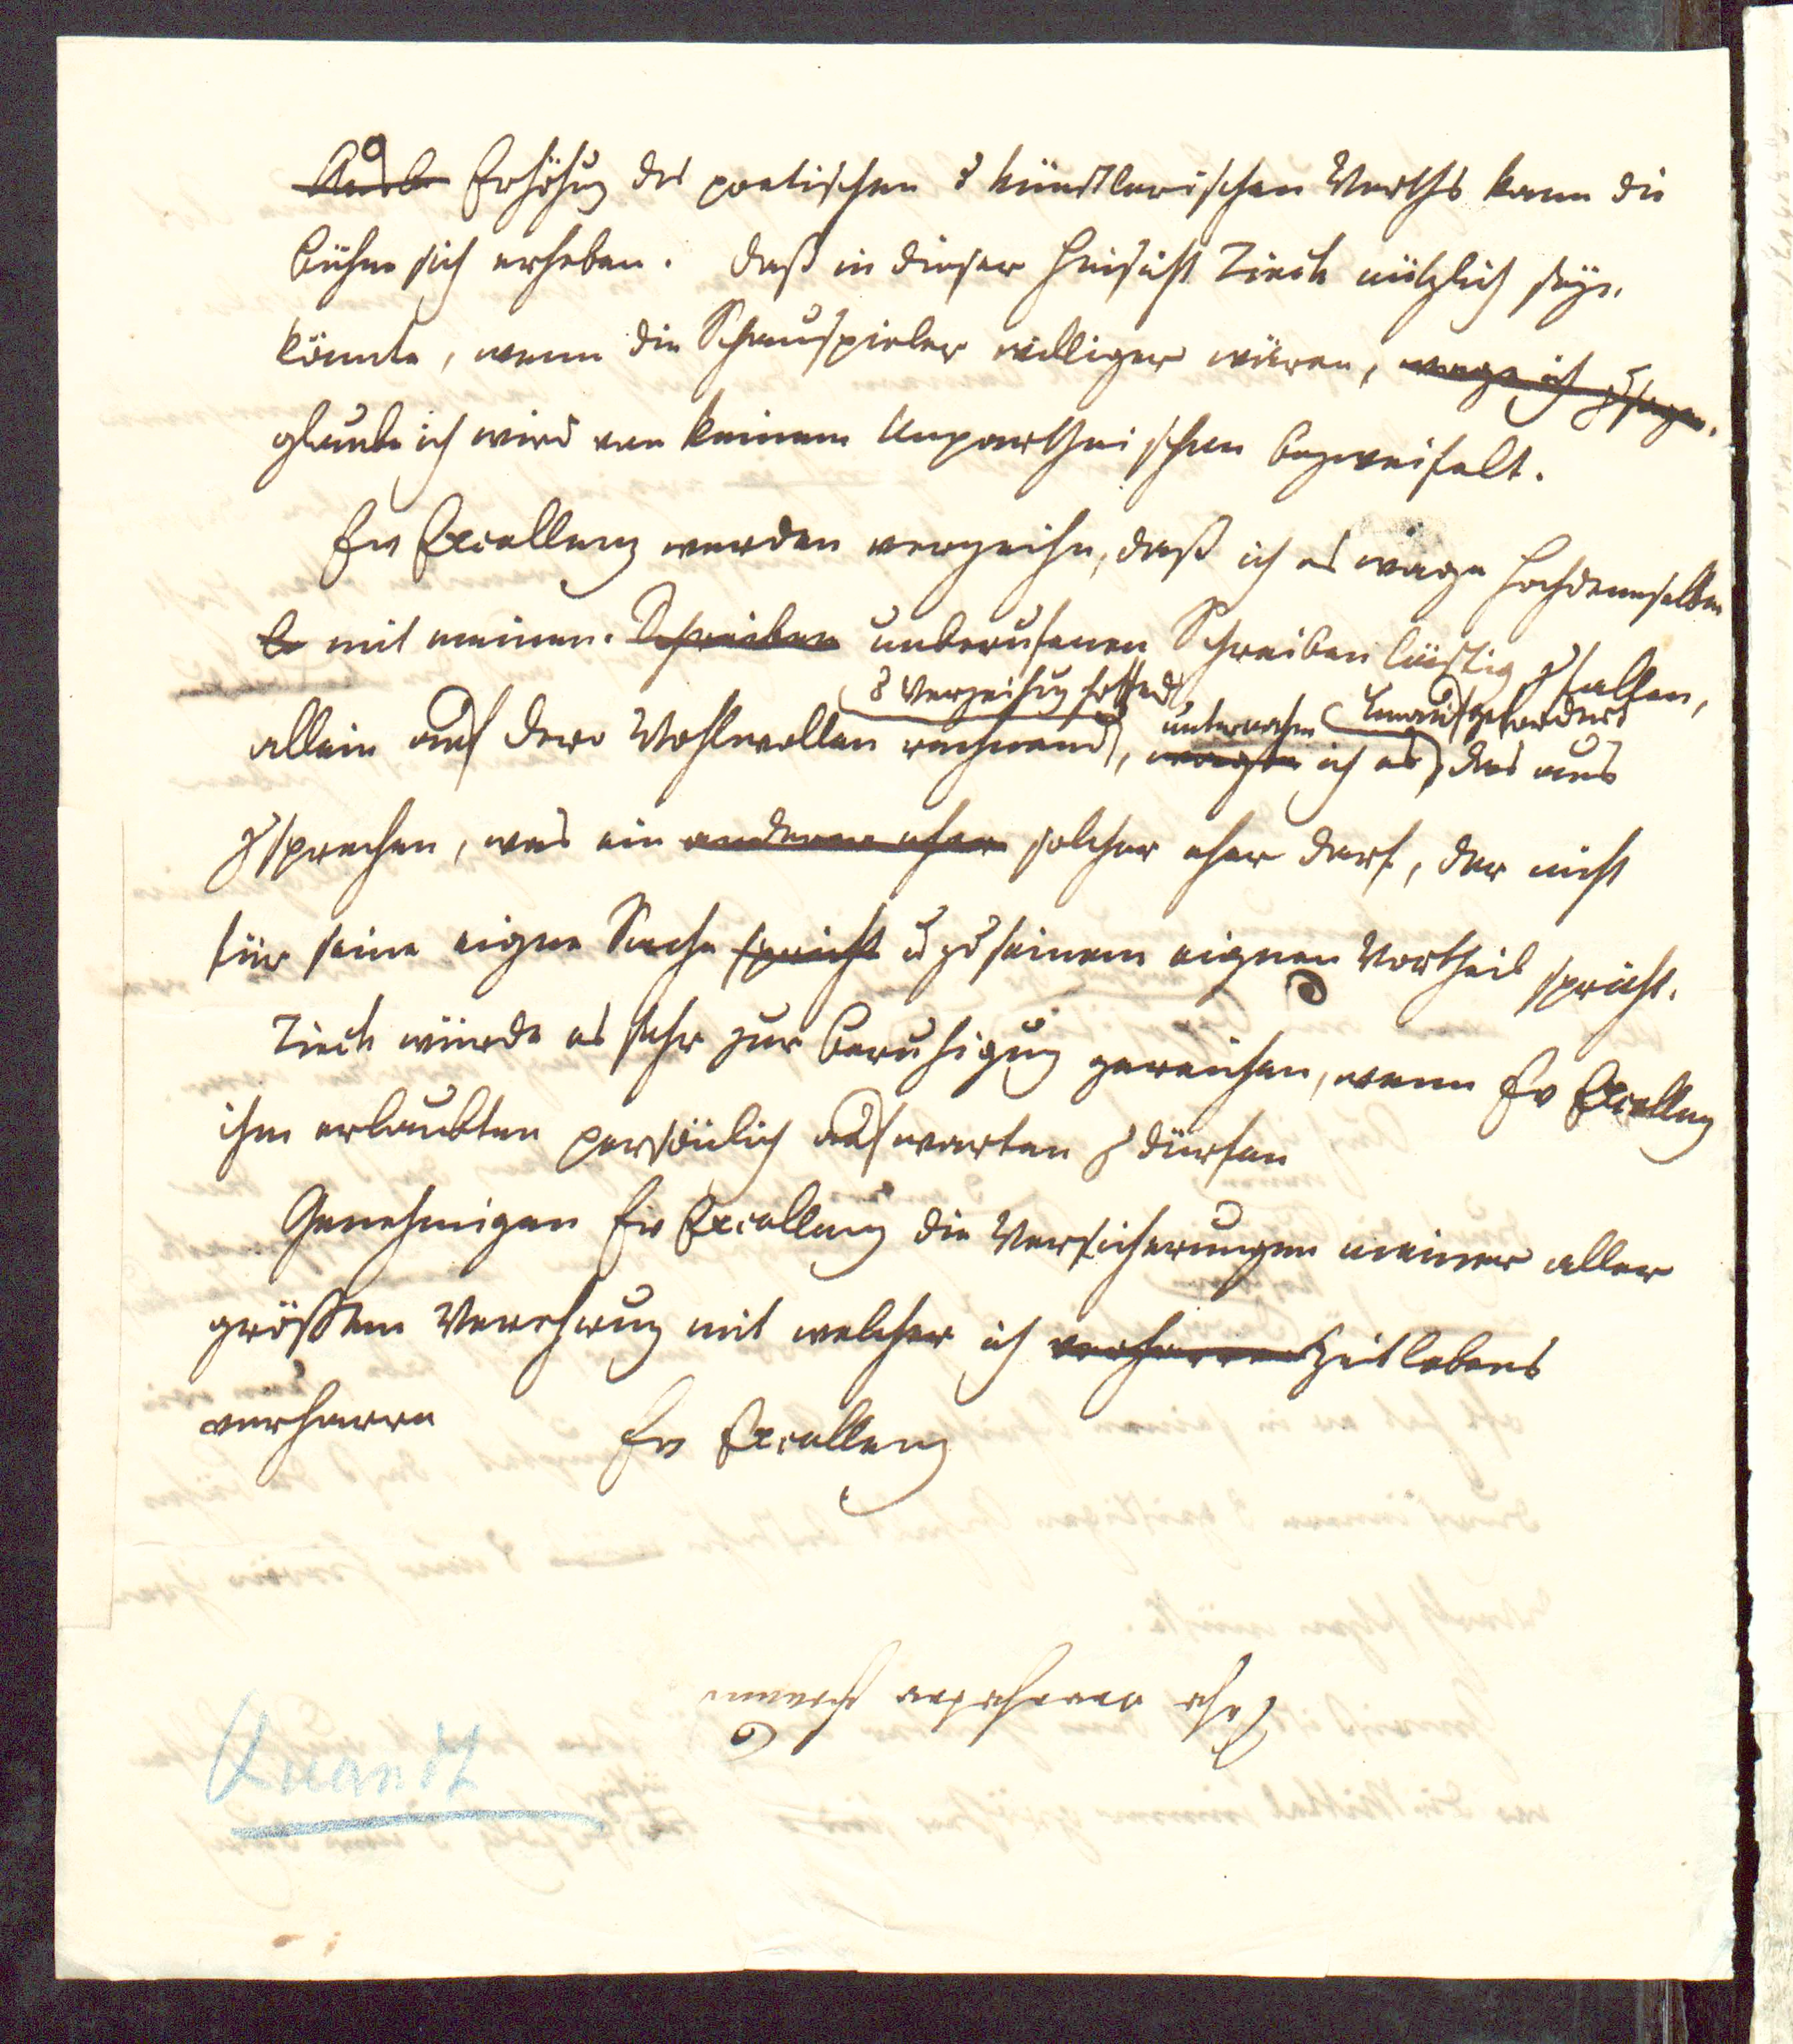 Erhöhug des poetischen & künstlerischen Werths kann die
Bühne sich erheben. Daß in dieser Hinsicht Tieck nützlich seyn
könnte, wenn die Schauspieler williger wären, wage ich zu sagen.
glaube ich wird von keinem Unpartheiischen bezweifelt.
Ew Excellenz werden verzeihn, daß ich es wage Hochdenenselben
mit meinen Schreiben unberufenen Schreiben lästig zu fallen,
& Verzeihug hoffend
unternehm
allein auf dero Wohlwollen rechnend, wage ich es, das aus
zusprechen, was ein anderer eher solcher eher darf, der nicht
für seine eigne Sache spricht u zu seinem eignen Vortheil spricht.
Tieck würde es sehr zur Beruhigug gereichen, wenn Ew Excellenz
ihm erlaubten persönlich aufwarten zu dürfen
Genehmigen Ew Excellenz die Versicherungen meiner aller
größten Verehrug mit welcher ich verharre Zeitlebens
verharre
Ew Excellenz
Quandt